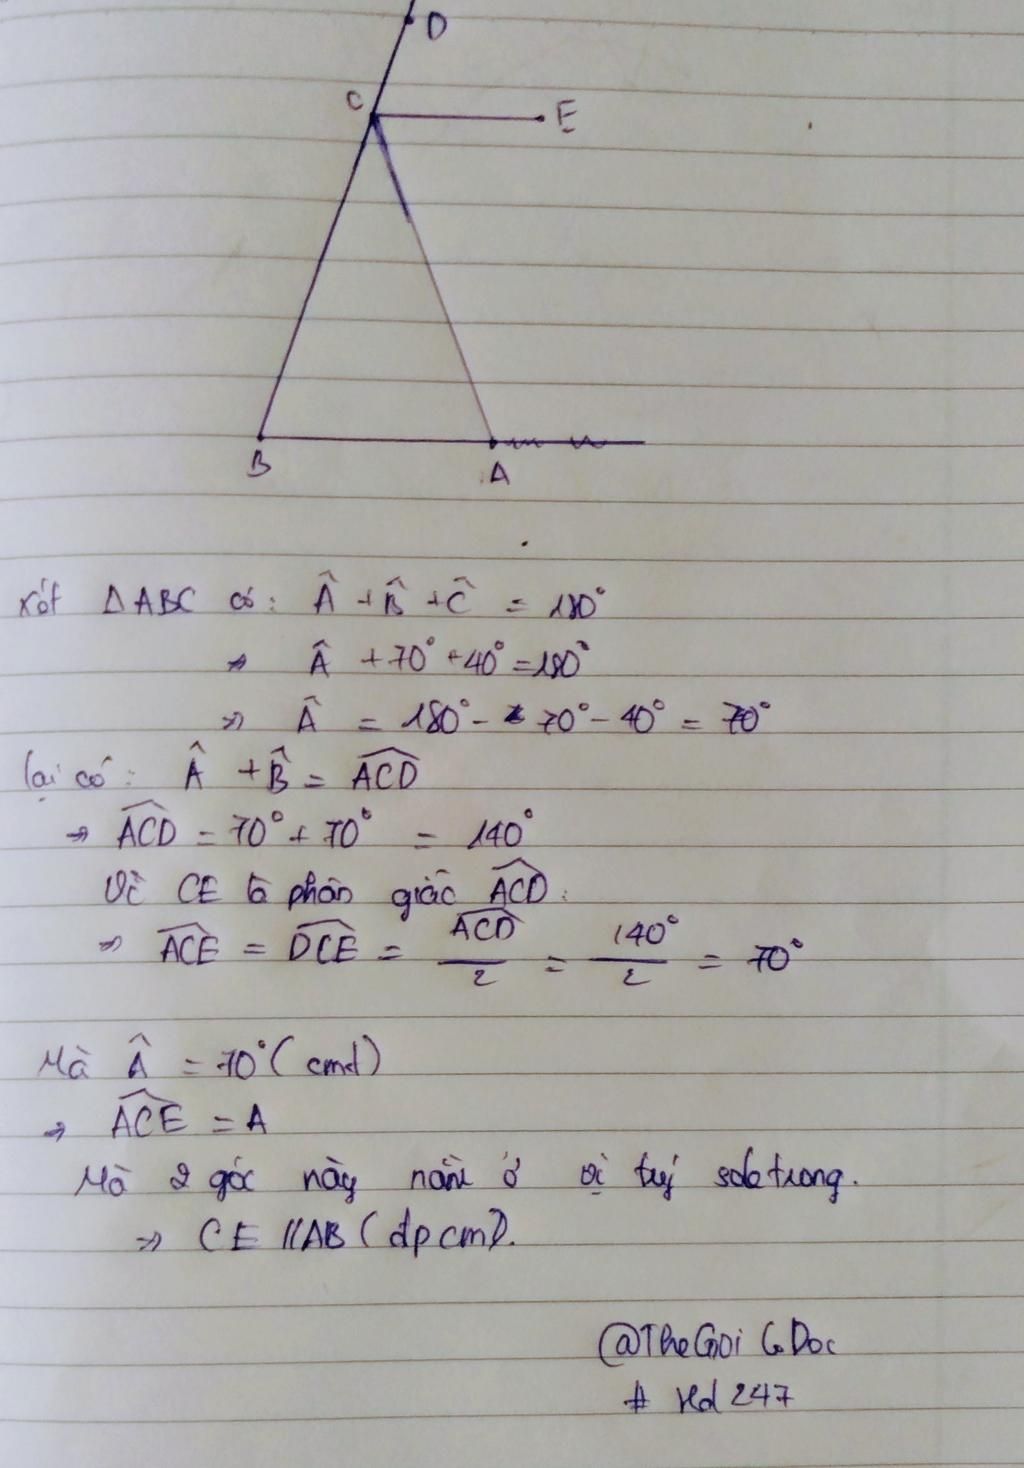 D
C
E
B
A
xét Δ ABC có: Â + B̂ + Ĉ = 180°
⇒ Â + 70° + 40° = 180°
⇒ Â = 180° - 70° - 40° = 70°
lại có: Â + B̂ = ACD̂
⇒ ACD̂ = 70° + 70° = 140°
Vì CE là phân giác ACD̂:
⇒ ACÊ = DCÊ = ACD̂/2 = 140°/2 = 70°
Mà Â = 70° (cmt)
⇒ ACÊ = A
Mà 2 góc này nằm ở vị trí sole trong.
⇒ CE // AB (đpcm).
@TheGioiCoDoc
# Hd 247